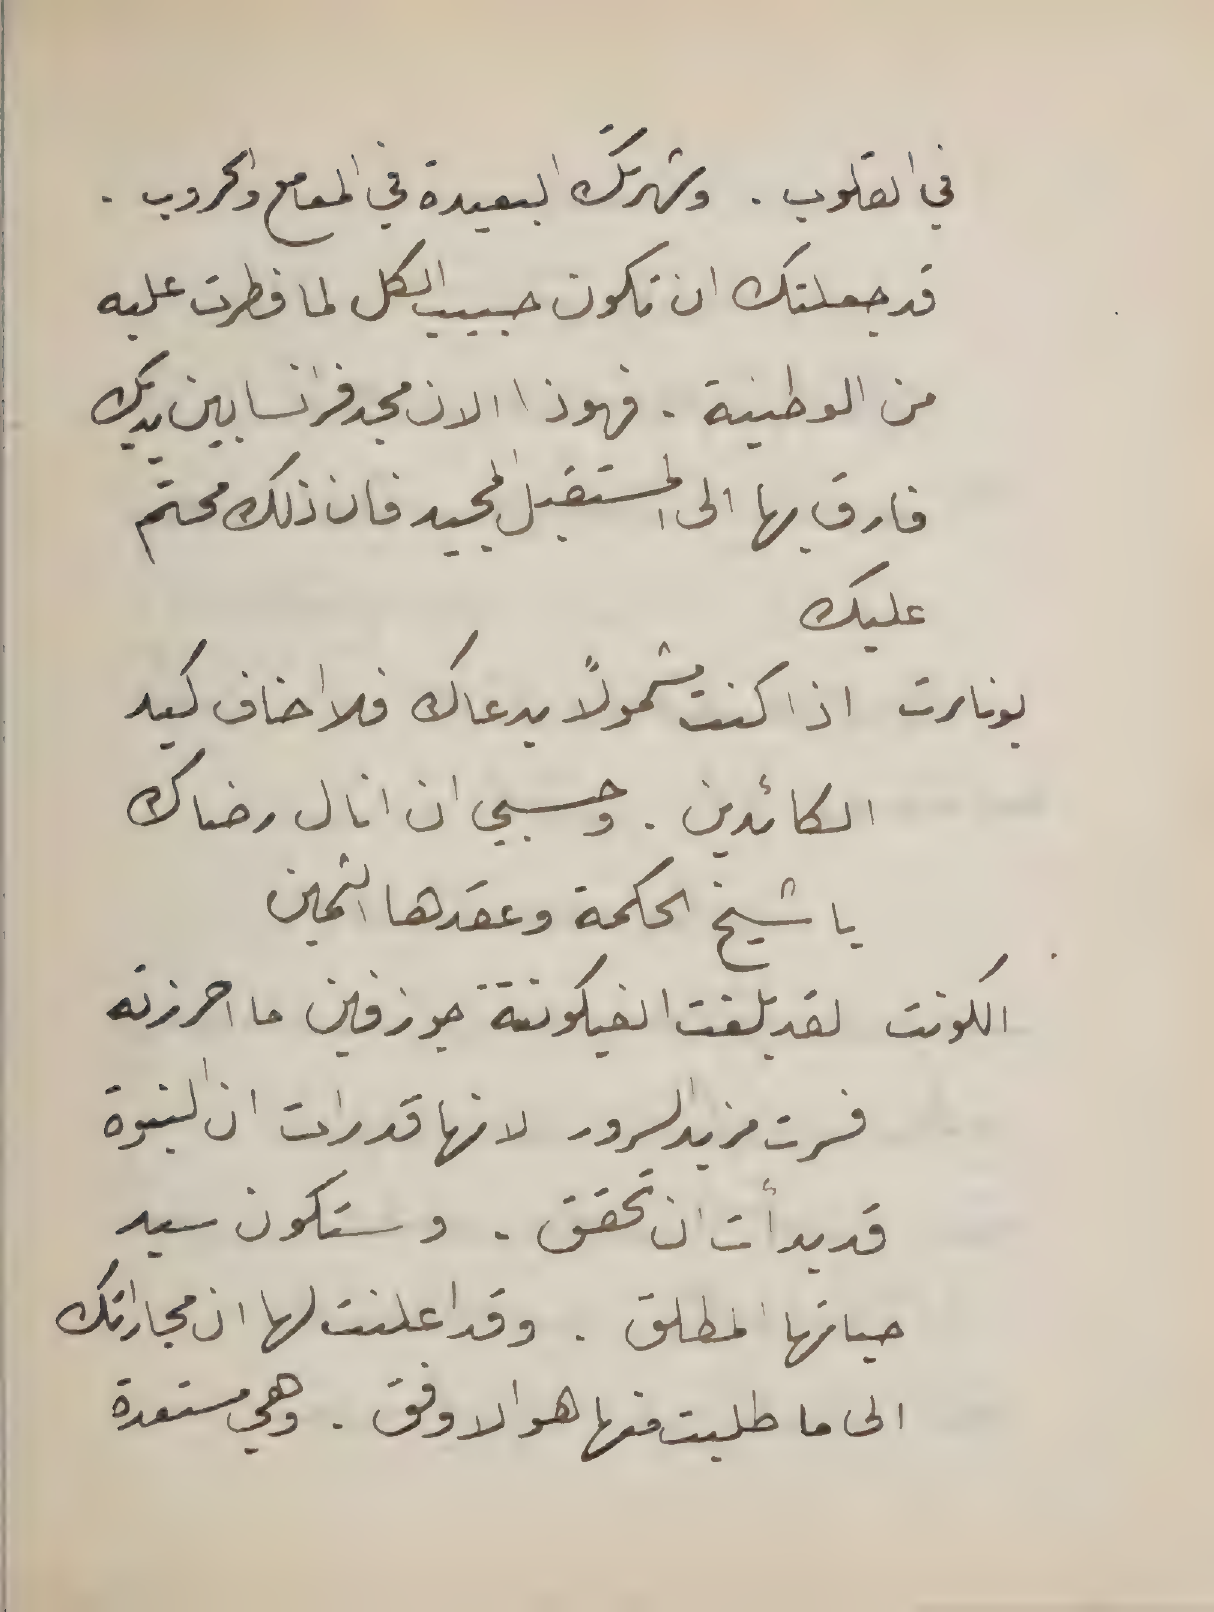 في القلوب . وشهرتك البعيدة في المعامع والحروب .
قد جعلتك ان تكون حبيب الكل لما فطرت عليه
من الوطنية . فهوذا الان مجد فرانسا بين يديك
فارق بها الى المستقبل المجيد فان ذلك محتم
عليك
بونابرت اذا كنت مشمولاً بدعاك فلا اخاف كيد
الكائدين . وحسبي ان انال رضاك
يا شيخ الحكمة وعقدها الثمين
الكونت لقد بلغت الفيكونتة جوزفين ما احرزته
فسرت مزيد السرور لانها قد رات ان النبوة
قد بدأت ان تحقق . وستكون سيد
حياتها المطلق . وقد اعلنت لها ان مجاراتك
الى ما طلبت منها هو الاوفق . وهي مستعدة